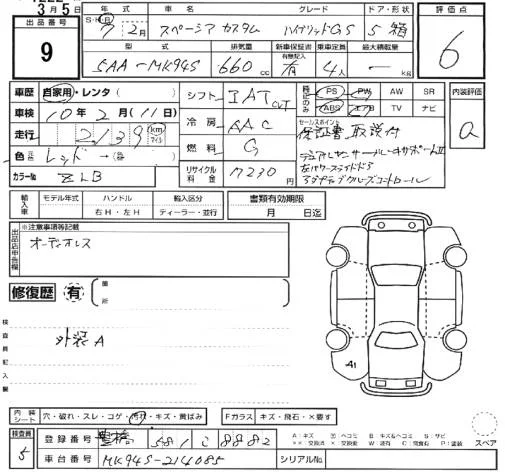 3月5日
出品番号
9
年式 車名 グレード ドア・形状
7年2月 スペーシア カスタム ハイブリッドGS 5 箱
型式 排気量 新車保証書 乗車定員 最大積載量
5AA-MK94S 660cc 有 4人 - kg
評価点
6
車歴 自家用・レンタ( )
車検 10年2月(11日)
走行 2,139 km マイル
色 レッド→( )
カラーNo. ZLB
シフト IAT CVT
冷房 AAC
燃料 G
リサイクル料金 7230円
PS PW AW SR
ABS エアB TV ナビ
セールスポイント
保証書 取説付
デュアルセンサーブレーキサポートII
左パワースライドドア
アダプティブクルーズコントロール
内装評価
a
輸入車 モデル年式 ハンドル 輸入区分
年 右H・左H ディーラー・並行
書類有効期限
月 日迄
※注意事項等記載
出品店申告欄
オーディオレス
修復歴 有
箇所
検査員記入欄
外装A
A1
内装シート 穴・破れ・スレ・コゲ・汚れ・キズ・黄ばみ
Fガラス キズ・飛石・×要す
検査員
5
登録番号 豊橋 581 こ 8882
車台番号 MK94S-214085
シリアルNo.
スペア